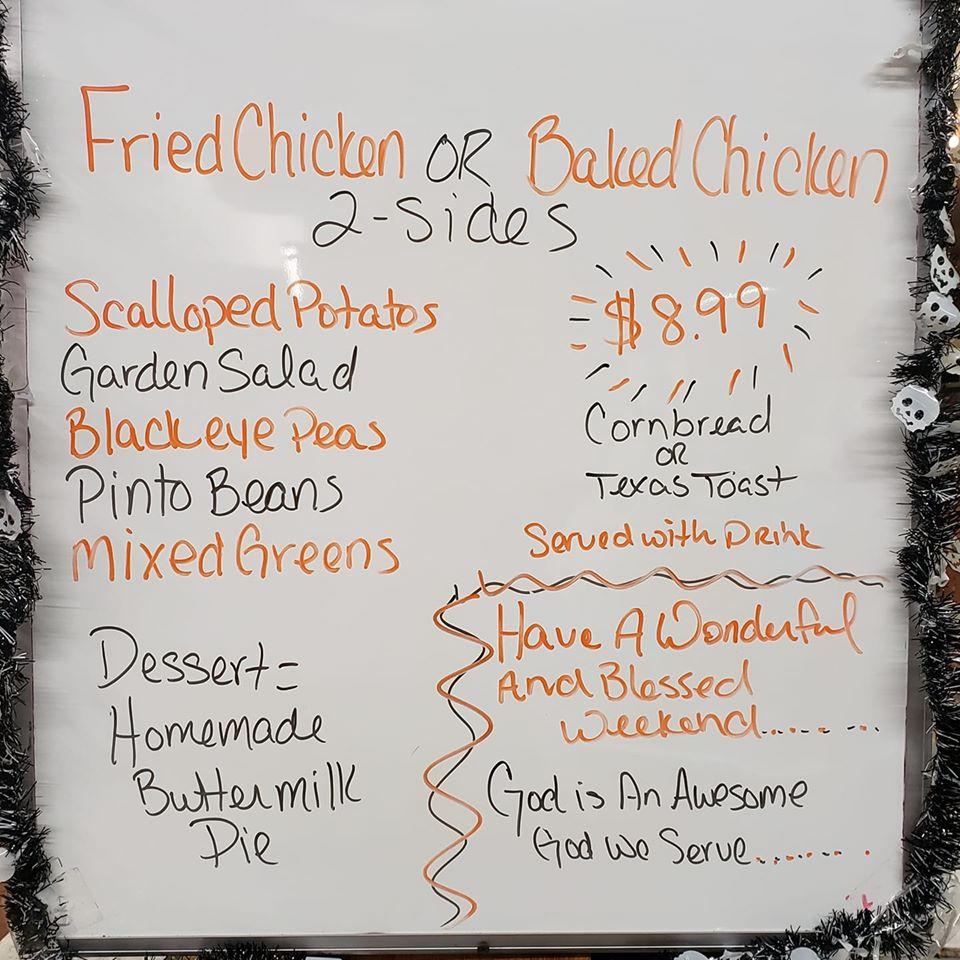 Fried Chicken OR Baked Chicken
2-Sides
Scalloped Potatos
Garden Salad
Blackeye Peas
Pinto Beans
Mixed Greens
$8.99
Cornbread
OR
Texas Toast
Served with Drink
Dessert=
Homemade
Buttermilk
Pie
Have A Wonderful
And Blessed
Weekend........
God is An Awesome
God we Serve........